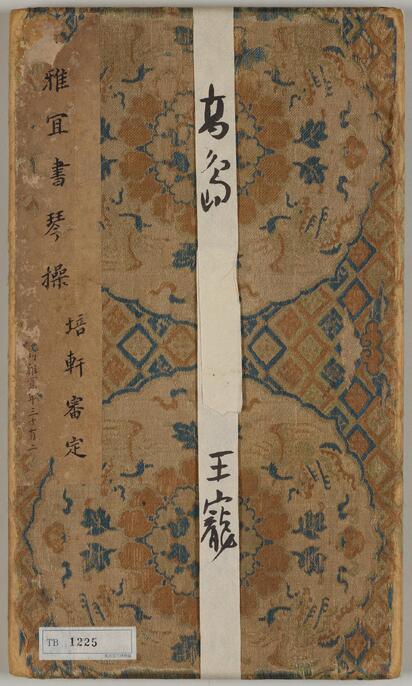 雅宜書琴操
培軒審定
高島
王寵
TB 1225